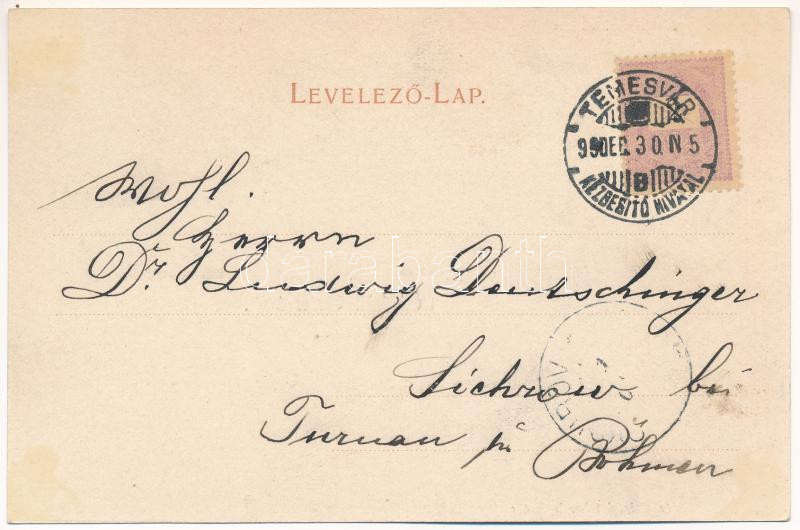 LEVELEZŐ-LAP.
TEMESVÁR
99 DEC. 30. N 5
B
KÉZBESITŐ HIVATAL
Wohl.
Herrn
Dr. Ludwig Deutschinger
darabanth
Sichrow bei
Turnau in Böhmen